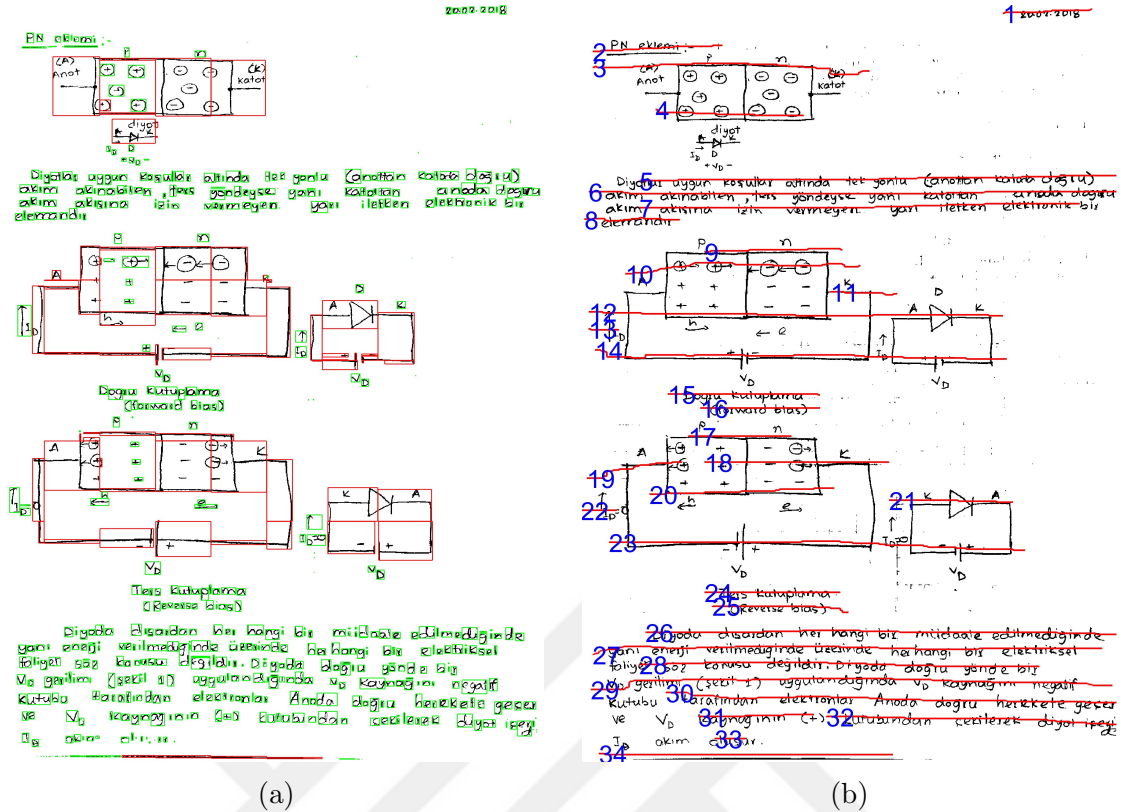 20.02.2018
PN eklemi:
P n
(A) (K)
Anot katot
diyot
A K
I_D D
+ V_D -
Diyotlar uygun koşullar altında tek yönlü (anottan katoda doğru)
akım akıtabilen, ters yöndeyse yani katottan anoda doğru
akım akışına izin vermeyen yarı iletken elektronik bir
elemandır
P n
A K D
A K
I_D h e I_D
V_D V_D
Doğru kutuplama
(forward bias)
P n
A K
K A
I_D=0 h e I_D=0
- + V_D V_D
Ters kutuplama
(Reverse bias)
Diyoda dışardan her hangi bir müdaale edilmediğinde
yani enerji verilmediğinde üzerinde herhangi bir elektriksel
faliyet söz konusu değildir. Diyoda doğru yönde bir
V_D gerilim (şekil 1) uygulandığında V_D kaynağın negatif
kutubu tarafından elektronlar Anoda doğru herekete geçer
ve V_D kaynağının (+) kutubundan çekilerek diyot içeği
I_D akım
(a)
1 20.02.2018
2 PN eklemi:
3 P n
(A) (K)
Anot katot
4
diyot
A K
I_D D
+ V_D -
5 Diyotlar uygun koşullar altında tek yönlü (anottan katoda doğru)
6 akım akıtabilen, ters yöndeyse yani katottan anoda doğru
7 akım akışına izin vermeyen yarı iletken elektronik bir
8 elemandır
9 P n
10 A K 11
12 A D K
13 I_D h e I_D
14 + - V_D V_D
15 Doğru kutuplama
16 (forward bias)
17 P n
18 A K
19 20 h e 21 K A
22 I_D=0 I_D=0
23 - + - +
V_D V_D
24 Ters kutuplama
25 (Reverse bias)
26 Diyoda dışardan her hangi bir müdaale edilmediğinde
27 yani enerji verilmediğinde üzerinde herhangi bir elektriksel
28 faliyet söz konusu değildir. Diyoda doğru yönde bir
29 V_D gerilim (şekil 1) uygulandığında V_D kaynağın negatif
30 kutubu tarafından elektronlar Anoda doğru herekete geçer
31 ve V_D kaynağının (+) 32 kutubundan çekilerek diyot içeği
33 I_D akım oluşur.
34
(b)